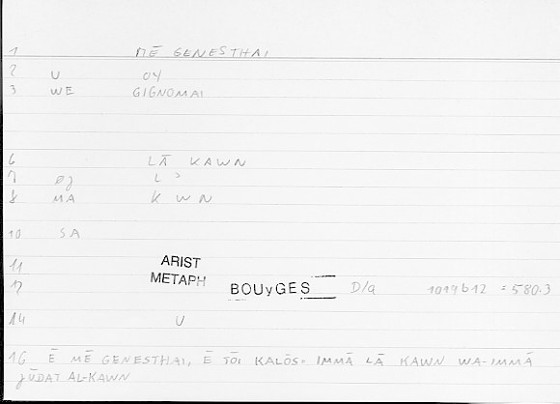 1 MĒ GENESTHAI
2 U OY
3 WE GIGNOMAI
6 LĀ KAWN
7 EJ L ʾ
8 MA K W N
10 SA
11 ARIST
12 METAPH BOUyGES D/a 1019b12 = 580.3
14 U
16 Ē MĒ GENESTHAI, Ē TŌI KALŌS · IMMĀ LĀ KAWN WA-IMMĀ
ǦŪDAT AL-KAWN